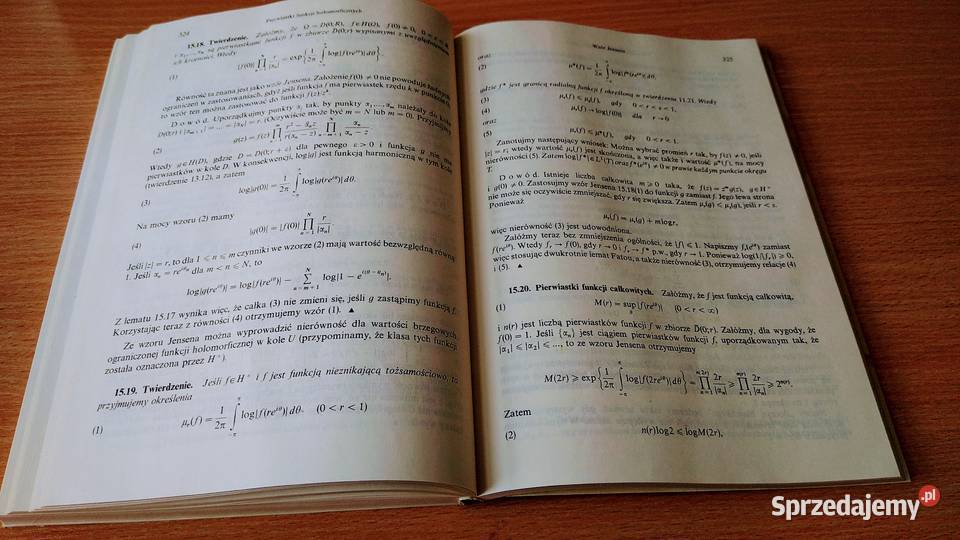 324
Pierwiastki funkcji holomorficznych
15.18. Twierdzenie. Załóżmy, że Ω = D(0;R), f∈H(Ω), f(0) ≠ 0, 0 < r < R
są pierwiastkami funkcji f w zbiorze D̄(0;r) wypisanymi z uwzględnieniem
ich krotności. Wtedy
(1) |f(0)| ∏_{n=1}^{N} r/|α_n| = exp{1/2π ∫_{-π}^{π} log|f(re^{iθ})|dθ}.
Równość ta znana jest jako wzór Jensena. Założenie f(0) ≠ 0 nie powoduje żadnych
ograniczeń w zastosowaniach, gdyż jeśli funkcja f ma pierwiastek rzędu k w punkcie 0,
to wzór ten można zastosować do funkcji f(z)/z^k.
Dowód. Uporządkujmy punkty α_j tak, by punkty α_1, ..., α_m należały do koła
D(0;r) i |α_{m+1}| = ... = |α_N| = r. (Oczywiście może być m = N lub m = 0). Przyjmijmy
(2) g(z) = f(z) ∏_{n=1}^{m} (r² − ᾱ_n z)/(r(α_n − z)) ∏_{n=m+1}^{N} α_n/(α_n − z)
Wtedy g∈H(D), gdzie D = D(0; r + ε) dla pewnego ε > 0 i funkcja g nie ma
pierwiastków w kole D. W konsekwencji, log|g| jest funkcją harmoniczną w tym kole
(twierdzenie 13.12), a zatem
(3) log|g(0)| = 1/2π ∫_{-π}^{π} log|g(re^{iθ})|dθ.
Na mocy wzoru (2) mamy
(4) |g(0)| = |f(0)| ∏_{n=1}^{m} r/|α_n|.
Jeśli |z| = r, to dla 1 ≤ n ≤ m czynniki we wzorze (2) mają wartość bezwzględną równą
1. Jeśli α_n = re^{iθ_n} dla m < n ≤ N, to
log|g(re^{iθ})| = log|f(re^{iθ})| − ∑_{n=m+1}^{N} log|1 − e^{i(θ−θ_n)}|.
Z lematu 15.17 wynika więc, że całka (3) nie zmieni się, jeśli g zastąpimy funkcją f.
Korzystając teraz z równości (4) otrzymujemy wzór (1). ▲
Ze wzoru Jensena można wyprowadzić nierówność dla wartości brzegowych
ograniczonej funkcji holomorficznej w kole U (przypominamy, że klasa tych funkcji
została oznaczona przez H^∞).
15.19. Twierdzenie. Jeśli f∈H^∞ i f jest funkcją nieznikającą tożsamościowo, to
przyjmujemy określenia
(1) μ_r(f) = 1/2π ∫_{-π}^{π} log|f(re^{iθ})|dθ, (0 < r < 1)
Wzór Jensena
325
oraz
(2) μ*(f) = 1/2π ∫_{-π}^{π} log|f*(e^{iθ})|dθ,
gdzie f* jest granicą radialną funkcji f określoną w twierdzeniu 11.21. Wtedy
(3) μ_r(f) ≤ μ_s(f), gdy 0 < r < s < 1,
(4) μ_r(f) → log|f(0)| dla r → 0
oraz
(5) μ_r(f) ≤ μ*(f), gdy 0 < r < 1.
Zanotujmy następujący wniosek: Można wybrać promień r tak, by f(z) ≠ 0, jeśli
|z| = r; wtedy wartość μ_r(f) jest skończona, a więc także i wartość μ*(f), na mocy
nierówności (5). Zatem log|f*| ∈ L¹(T) oraz f*(e^{iθ}) ≠ 0 w prawie każdym punkcie okręgu
T.
Dowód. Istnieje liczba całkowita m ≥ 0 taka, że f(z) = z^m g(z), g∈H^∞
i g(0) ≠ 0. Zastosujmy wzór Jensena 15.18(1) do funkcji g zamiast f. Jego lewa strona
nie może się oczywiście zmniejszać, gdy r się zwiększa. Zatem μ_r(g) ≤ μ_s(g), jeśli r < s.
Ponieważ
μ_r(f) = μ_r(g) + m log r,
więc nierówność (3) jest udowodniona.
Załóżmy teraz bez zmniejszenia ogólności, że |f| ≤ 1. Napiszmy f_r(e^{iθ}) zamiast
f(re^{iθ}). Wtedy f_r → f(0), gdy r → 0 i f_r → f* p.w., gdy r → 1. Ponieważ log(1/|f_r|) ≥ 0,
więc stosując dwukrotnie lemat Fatou, a także nierówność (3), otrzymujemy relacje (4)
i (5). ▲
15.20. Pierwiastki funkcji całkowitych. Załóżmy, że f jest funkcją całkowitą,
(1) M(r) = sup_θ |f(re^{iθ})| (0 < r < ∞)
i n(r) jest liczbą pierwiastków funkcji f w zbiorze D̄(0;r). Załóżmy, dla wygody, że
f(0) = 1. Jeśli {α_n} jest ciągiem pierwiastków funkcji f, uporządkowanym tak, że
|α_1| ≤ |α_2| ≤ ..., to ze wzoru Jensena otrzymujemy
M(2r) ≥ exp{1/2π ∫_{-π}^{π} log|f(2re^{iθ})|dθ} = ∏_{n=1}^{n(2r)} 2r/|α_n| ≥ ∏_{n=1}^{n(r)} 2r/|α_n| ≥ 2^{n(r)}.
Zatem
(2) n(r)log2 ≤ logM(2r),
Sprzedajemy.pl